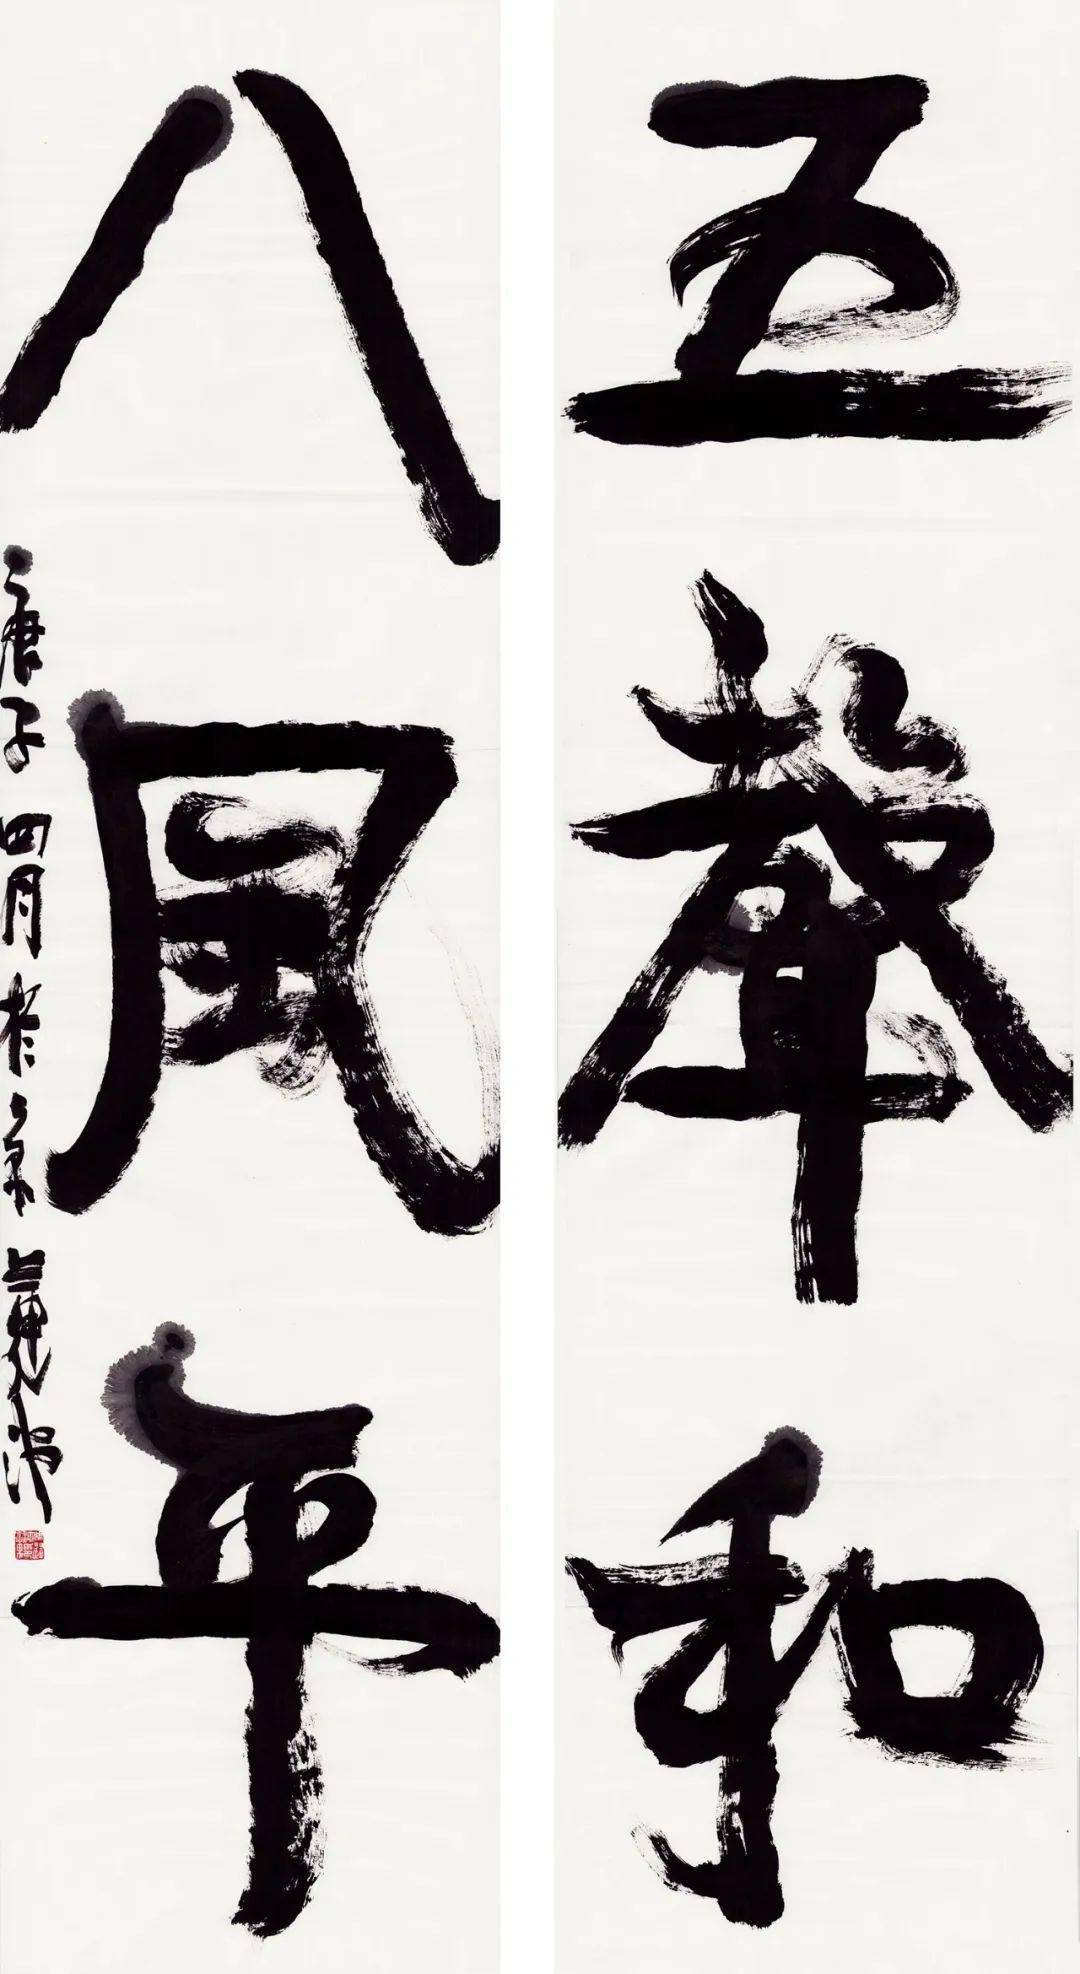 五聲和
八風平
庚子四月於京